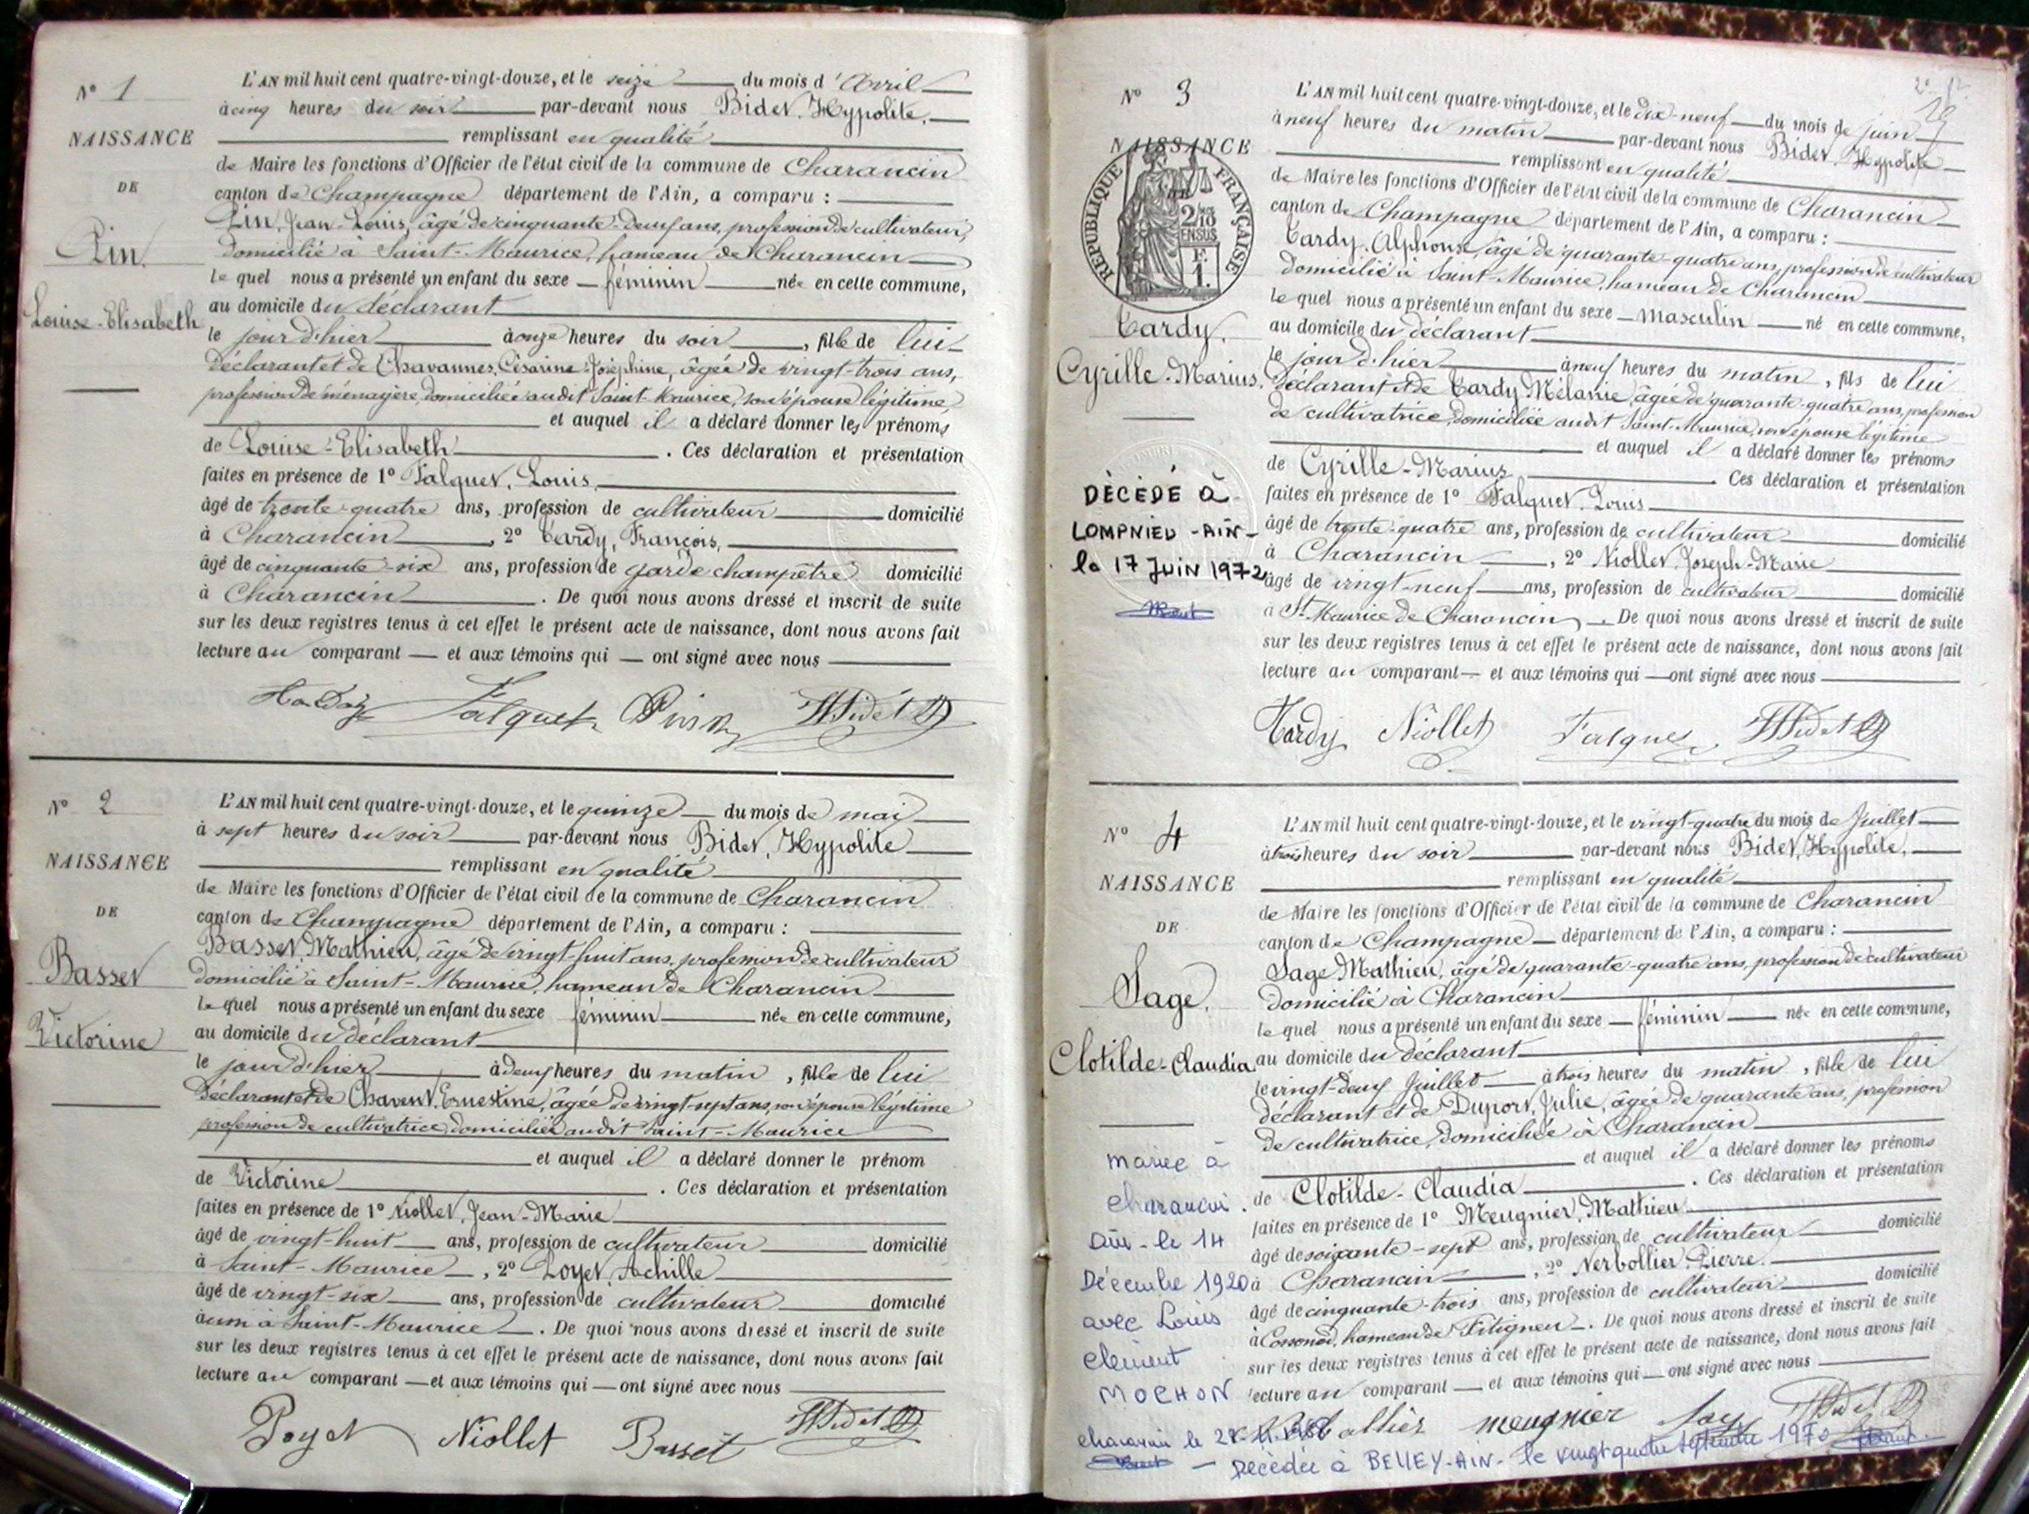 N° 1
NAISSANCE
DE
Pin
Louise-Elisabeth
L'AN mil huit cent quatre-vingt-douze, et le seize du mois d'Avril
à cinq heures du soir par-devant nous Bidet, Hypolite,
remplissant en qualité
de Maire les fonctions d'Officier de l'état civil de la commune de Charancin
canton de Champagne département de l'Ain, a comparu :
Pin, Jean-Louis, âgé de cinquante-deux ans, profession de cultivateur,
domicilié à Saint-Maurice, hameau de Charancin
le quel nous a présenté un enfant du sexe féminin née en cette commune,
au domicile du déclarant
le jour d'hier à onze heures du soir, fille de lui
déclarant et de Chavannes, Césarine Joséphine, âgée de vingt-trois ans,
profession de ménagère, domiciliée audit Saint-Maurice, son épouse légitime,
et auquel il a déclaré donner les prénoms
de Louise-Elisabeth. Ces déclaration et présentation
faites en présence de 1° Falquet, Louis,
âgé de trente-quatre ans, profession de cultivateur domicilié
à Charancin, 2° Tardy, François,
âgé de cinquante-six ans, profession de garde champêtre domicilié
à Charancin. De quoi nous avons dressé et inscrit de suite
sur les deux registres tenus à cet effet le présent acte de naissance, dont nous avons fait
lecture au comparant et aux témoins qui ont signé avec nous
Falquet HBidet
N° 2
NAISSANCE
DE
Basset
Victorine
L'AN mil huit cent quatre-vingt-douze, et le quinze du mois de mai
à sept heures du soir par-devant nous Bidet, Hypolite
remplissant en qualité
de Maire les fonctions d'Officier de l'état civil de la commune de Charancin
canton de Champagne département de l'Ain, a comparu :
Basset, Mathieu, âgé de vingt-huit ans, profession de cultivateur
domicilié à Saint-Maurice, hameau de Charancin
le quel nous a présenté un enfant du sexe féminin née en cette commune,
au domicile du déclarant
le jour d'hier à deux heures du matin, fille de lui
déclarant et de Chavent, Ernestine, âgée de vingt-sept ans, son épouse légitime
profession de cultivatrice, domiciliée audit Saint-Maurice
et auquel il a déclaré donner le prénom
de Victorine. Ces déclaration et présentation
faites en présence de 1° Niollet, Jean-Marie
âgé de vingt-huit ans, profession de cultivateur domicilié
à Saint-Maurice, 2° Poyet, Achille
âgé de vingt-six ans, profession de cultivateur domicilié
à Saint-Maurice. De quoi nous avons dressé et inscrit de suite
sur les deux registres tenus à cet effet le présent acte de naissance, dont nous avons fait
lecture au comparant et aux témoins qui ont signé avec nous
Poyet Niollet Basset HBidet
N° 3
NAISSANCE
RÉPUBLIQUE FRANÇAISE
2/10
EN SUS
F.
1.
Tardy.
Cyrille-Marius.
DÉCÉDÉ à
LOMPNIEU -AIN-
le 17 JUIN 1972
19
L'AN mil huit cent quatre-vingt-douze, et le dix-neuf du mois de juin
à neuf heures du matin par-devant nous Bidet, Hypolite
remplissant en qualité
de Maire les fonctions d'Officier de l'état civil de la commune de Charancin
canton de Champagne département de l'Ain, a comparu :
Tardy, Alphonse, âgé de quarante-quatre ans, profession de cultivateur
domicilié à Saint-Maurice, hameau de Charancin
le quel nous a présenté un enfant du sexe masculin né en cette commune,
au domicile du déclarant
le jour d'hier à neuf heures du matin, fils de lui
déclarant et de Tardy Mélanie, âgée de quarante-quatre ans, profession
de cultivatrice, domiciliée audit Saint-Maurice, son épouse légitime
et auquel il a déclaré donner les prénoms
de Cyrille-Marius. Ces déclaration et présentation
faites en présence de 1° Falquet Louis
âgé de trente-quatre ans, profession de cultivateur domicilié
à Charancin, 2° Niollet, Joseph-Marie
âgé de vingt-neuf ans, profession de cultivateur domicilié
à St Maurice de Charancin. De quoi nous avons dressé et inscrit de suite
sur les deux registres tenus à cet effet le présent acte de naissance, dont nous avons fait
lecture au comparant et aux témoins qui ont signé avec nous
Tardy Niollet Falquet HBidet
N° 4
NAISSANCE
DE
Sage.
Clotilde-Claudia
mariée à
Charancin
Ain - le 14
Décembre 1920
avec Louis
clément
MOCHON
L'AN mil huit cent quatre-vingt-douze, et le vingt-quatre du mois de Juillet
à trois heures du soir par-devant nous Bidet, Hypolite,
remplissant en qualité
de Maire les fonctions d'Officier de l'état civil de la commune de Charancin
canton de Champagne département de l'Ain, a comparu :
Sage Mathieu, âgé de quarante-quatre ans, profession de cultivateur
domicilié à Charancin
le quel nous a présenté un enfant du sexe féminin née en cette commune,
au domicile du déclarant
le vingt-deux Juillet à trois heures du matin, fille de lui
déclarant et de Duport, Julie, âgée de quarante ans, profession
de cultivatrice, domiciliée à Charancin
et auquel il a déclaré donner les prénoms
de Clotilde-Claudia. Ces déclaration et présentation
faites en présence de 1° Meugnier, Mathieu
âgé de soixante-sept ans, profession de cultivateur domicilié
à Charancin, 2° Nerbollier Pierre
âgé de cinquante-trois ans, profession de cultivateur domicilié
à hameau de Fitignieu. De quoi nous avons dressé et inscrit de suite
sur les deux registres tenus à cet effet le présent acte de naissance, dont nous avons fait
lecture au comparant et aux témoins qui ont signé avec nous
meugnier HBidet
Charancin le
Décédée à BELLEY-AIN- le vingt quatre septembre